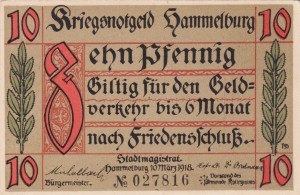 10 Kriegsnotgeld Hammelburg 10
Zehn Pfennig
Giltig für den Geld-
verkehr bis 6 Monat
nach Friedensschluß.
Stadtmagistrat.
Hammelburg 10. März 1918.
Bürgermeister.
10 № 027816 10